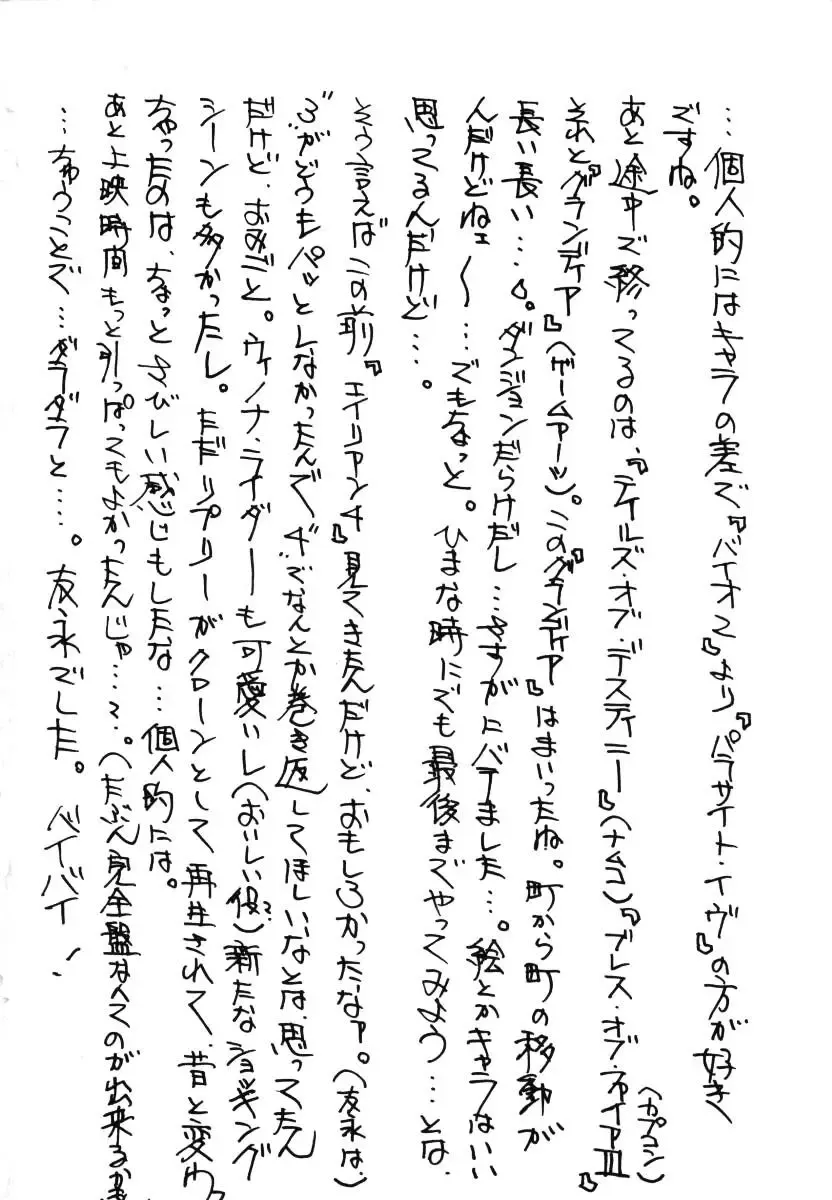 …個人的にはキャラの差で『バイオ2』より『パラサイト・イヴ』の方が好き
ですね。
あと途中で終ってるのは、『テイルズ・オブ・デスティニー』(ナムコ)『ブレス・オブ・ファイアIII』(カプコン)
それと『グランディア』(ゲームアーツ)。この『グランディア』はまいったね。町から町の移動が
長い長い…。ダンジョンだらけだし…さすがにバテました…。絵とかキャラないい
んだけどねェ〜…でもちょっと。ひまな時にでも最後までやってみよう…とは、
思ってるんだけど…。
そう言えばこの前、『エイリアン4』見てきたんだけど、おもしろかったなァ。(友永は、)
"3"がどうもパッとしなかったんで、"4"でなんとか巻き返してほしいなとは、思ってたん
だけど、おみごと。ウィノナ・ライダーも可愛いし(おいしい役?)新たなショッキング
シーンも多かったし。ただリプリーがクローンとして再生されて、昔と変わ
ちゃったのは、ちょっとさびしい感じもしたな…個人的には。
あと上映時間もっと引っぱってもよかったんじゃ…?。(たぶん完全盤なんてのが出来るか
…ちゅうことで…ダラダラと…。友永でした。バイバイ!